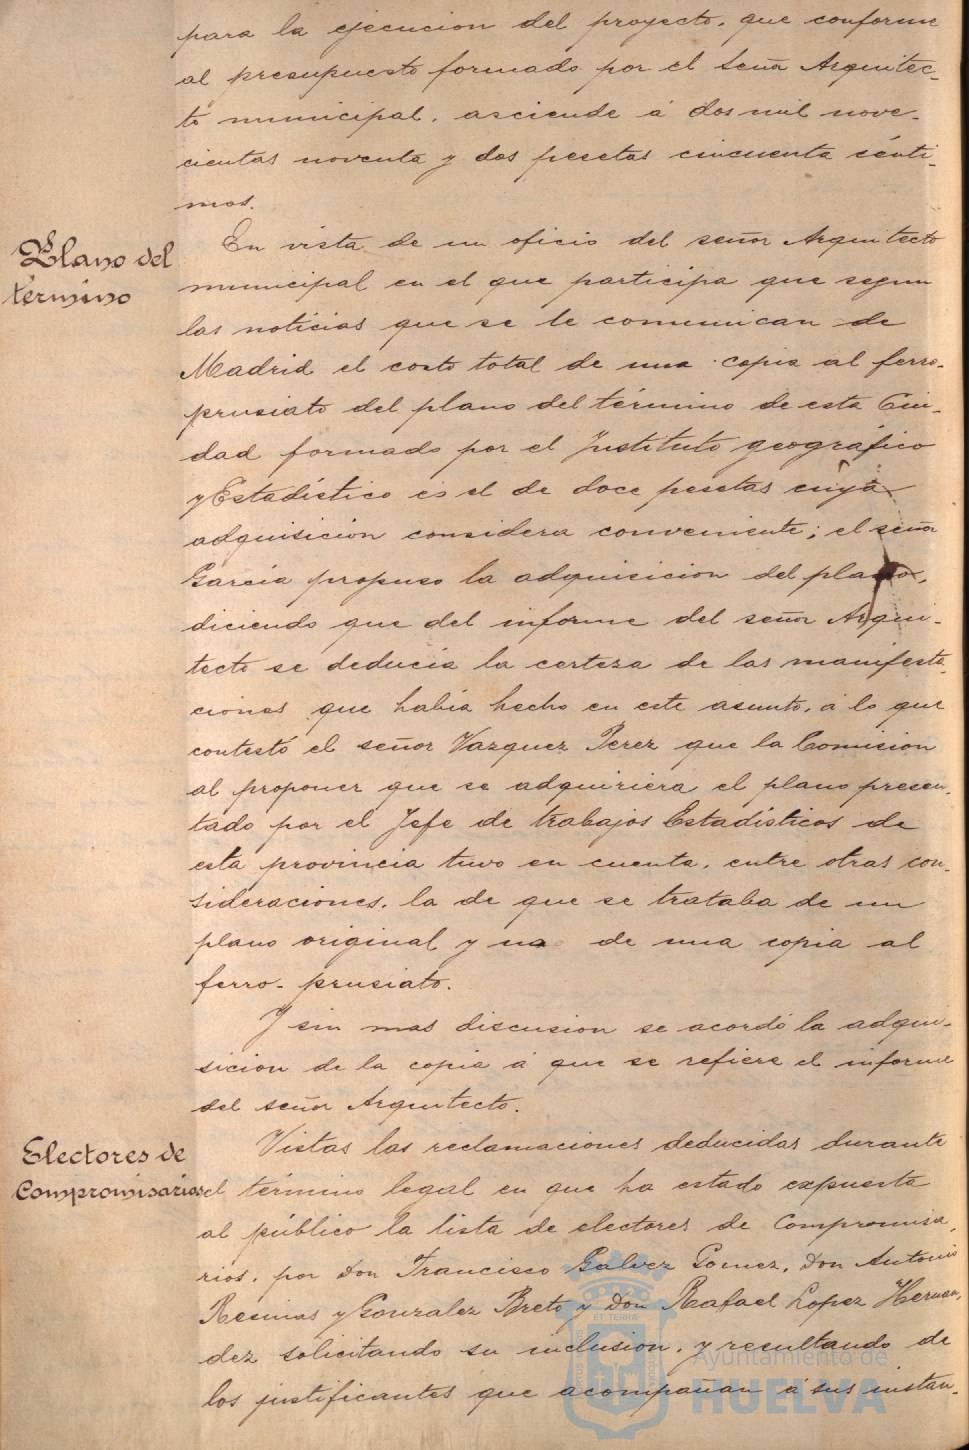 para la ejecucion del proyecto, que conforme
al presupuesto formado por el señor Arquitec-
to municipal, asciende á dos mil nove-
cientas noventa y dos pesetas cincuenta sénti-
mos.
Plano del
término
En vista de un oficio del señor Arquitecto
municipal en el que participa que segun
las noticias que se le comunican de
Madrid el costo total de una copia al ferro-
prusiato del plano del término de esta Ciu-
dad formado por el Instituto geográfico
y Estadístico es el de doce pesetas cuya
adquisición considera conveniente; el señor
García propuso la adquisicion del plano,
diciendo que del informe del señor Arqui-
tecto se deducía la certeza de las manifesta-
ciones que había hecho en este asunto, á lo que
contestó el señor Vazquez Perez que la Comision
al proponer que se adquiriera el plano presen-
tado por el Jefe de trabajos Estadísticos de
esta provincia tuvo en cuenta, entre otras con-
sideraciones, la de que se trataba de un
plano original y no de una copia al
ferro-prusiato.
Y sin mas discusion se acordó la adqui-
sicion de la copia á que se refiere el informe
del señor Arquitecto.
Electores de
Compromisarios
Vistas las reclamaciones deducidas durante
el término legal en que ha estado expuesta
al público la lista de electores de Compromisa-
rios, por Don Francisco Galvez Gomez, Don Antonio
Resinas y Gonzalez Breto y Don Rafael Lopez Hernan-
dez solicitando su inclusion, y resultando de
los justificantes que acompañan á sus instan-
Ayuntamiento de
HUELVA